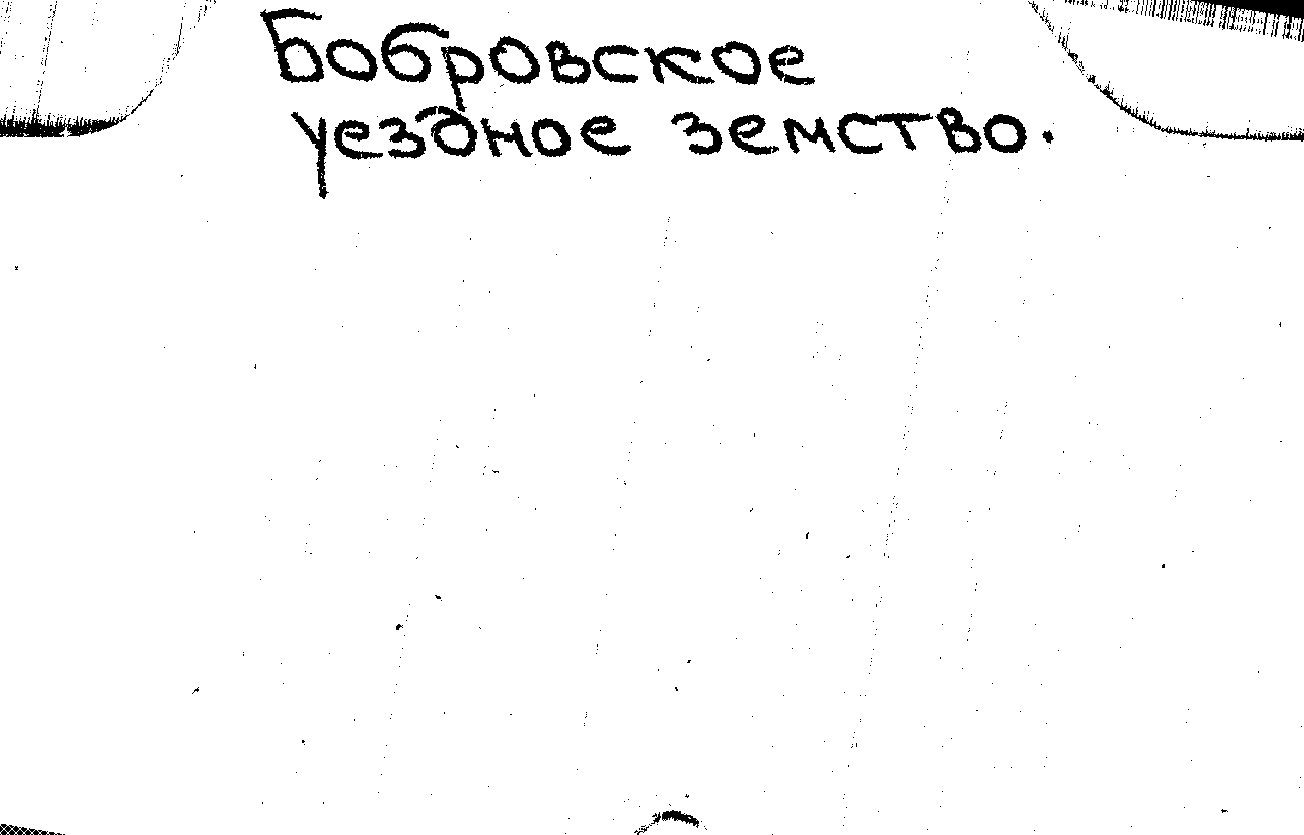 Бобровское
уездное земство.